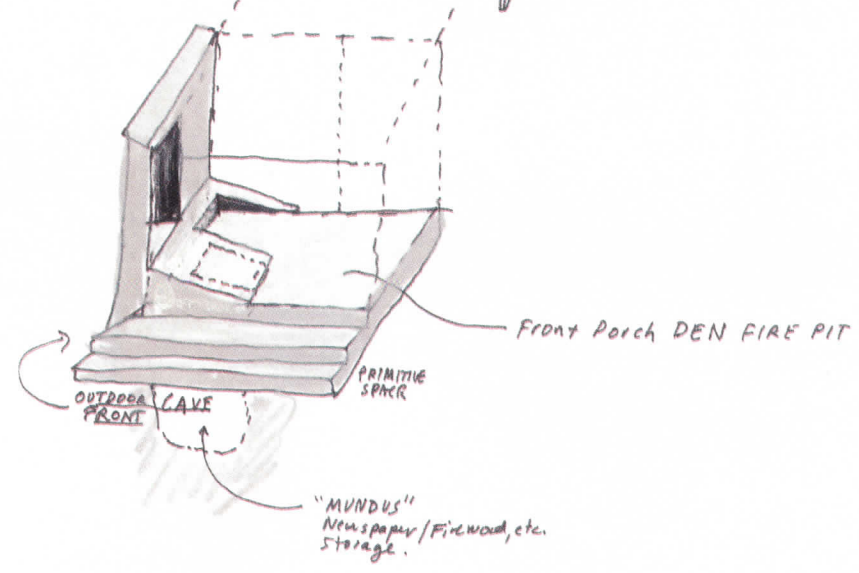 Front Porch DEN FIRE PIT
PRIMITIVE
SPACE
OUTDOOR
FRONT
CAVE
"MUNDUS"
Newspaper/Firewood, etc.
Storage.